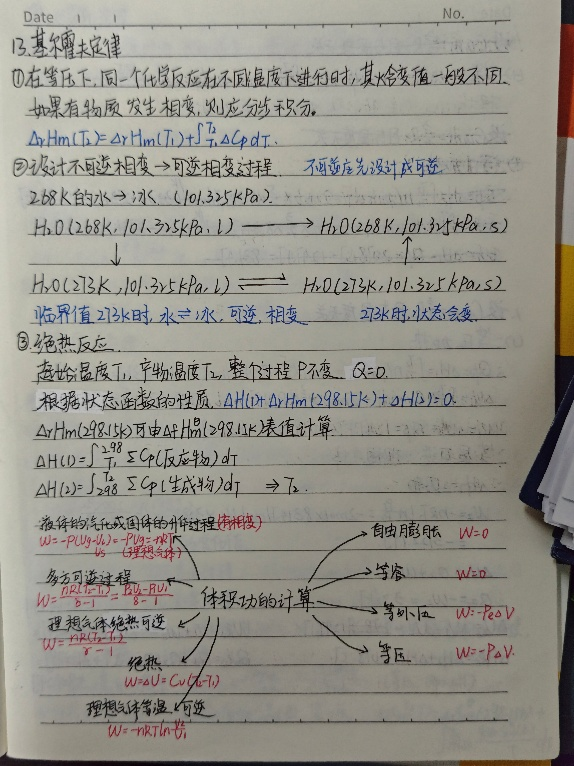 Date
No.
13.基尔霍夫定律
①在等压下,同一个化学反应在不同温度下进行时,其焓变值一般不同.
如果有物质发生相变,则应分步积分。
ΔrHm(T₂)=ΔrHm(T₁)+∫T₁T₂ΔCpdT.
②设计不可逆相变→可逆相变过程. 不可逆应先设计成可逆
268K的水→冰 (101.325kPa).
H₂O(268K,101.325kPa,l) → H₂O(268K,101.325kPa,s)
↓ ↑
H₂O(273K,101.325kPa,l) ⇌ H₂O(273K,101.325kPa,s)
临界值273K时,水⇌冰,可逆,相变 273K时,状态会变.
③绝热反应.
起始温度T₁,产物温度T₂,整个过程P不变 Q=0.
根据状态函数的性质,ΔH(1)+ΔrHm(298.15K)+ΔH(2)=0.
ΔrHm(298.15K)可由ΔfHm(298.15K)表值计算.
ΔH(1)=∫T₁298 ΣCp(反应物)dT
ΔH(2)=∫298T₂ ΣCp(生成物)dT ⇒T₂.
液体的汽化或固体的升华过程(有相变)
W=-P(Vg-Vl)=-PVg=-nRT
Vs (理想气体)
自由膨胀 W=0
多方可逆过程
W=nR(T₂-T₁)/δ-1=P₂V₂-P₁V₁/δ-1
等容 W=0
体积功的计算
等外压 W=-PeΔV
理想气体绝热可逆
W=nR(T₂-T₁)/γ-1
等压 W=-PΔV.
绝热
W=ΔU=Cv(T₂-T₁)
理想气体等温可逆
W=-nRTlnV₂/V₁